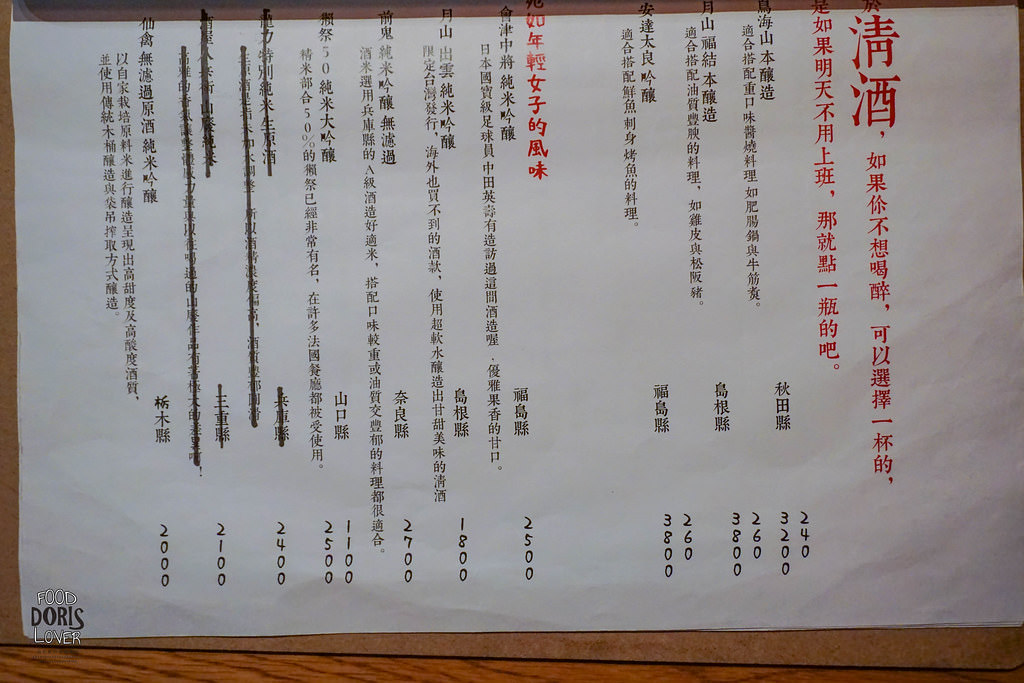 於清酒，如果你不想喝醉，可以選擇一杯的，
是如果明天不用上班，那就點一瓶的吧。
鳥海山 本釀造 秋田縣 240 3200
適合搭配重口味醬燒料理 如肥腸鍋與牛筋煮。
月山 福結 本釀造 島根縣 260 3800
適合搭配油質豐腴的料理，如雞皮與松阪豬。
安達太良 吟釀 福島縣 260 3800
適合搭配鮮魚刺身 烤魚的料理。
宛如年輕女子的風味
會津中將 純米吟釀 福島縣 2500
日本國寶級足球員 中田英壽有造訪過這間酒造喔，優雅果香的甘口。
月山 出雲 純米吟釀 島根縣 1800
限定台灣發行，海外也買不到的酒款，使用超軟水釀造出甘甜美味的清酒
前鬼 純米吟釀 無濾過 奈良縣 2700
酒米選用兵庫縣的A級酒造好適米，搭配口味較重或油質交豐郁的料理都很適合。
獺祭 50 純米大吟釀 山口縣 1100 2500
精米部合50%的獺祭已經非常有名，在許多法國餐廳都被受使用。
特別純米生原酒 兵庫縣 2400
三重縣 2100
仙禽 無濾過原酒 純米吟釀 栃木縣 2000
以自家栽培原料米進行釀造呈現出高甜度及高酸度酒質，
並使用傳統木桶釀造與袋吊搾取方式釀造。
FOOD
DORIS
LOVER